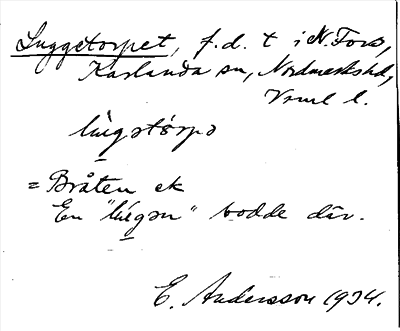 Luggetorpet, f.d. t i N. Fors,
Karlanda sn, Nordmarks hd,
Vrml l.
lùgətórpə
= Bråten ek
En "lúgən" bodde där.
E. Andersson 1934.